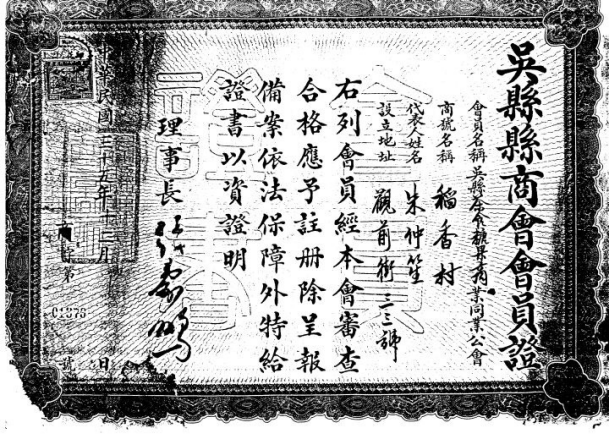 吳縣縣商會會員證
會員名稱 吳縣茶食糖菓商業同業公會
商號名稱 稻香村
代表人姓名 朱仲笙
設立地址 觀前街 三三號
右列會員經本會審查
合格應予註册除呈報
備案依法保障外特給
證書以資證明
理事長
中華民國三十五年十二月 日
第 號